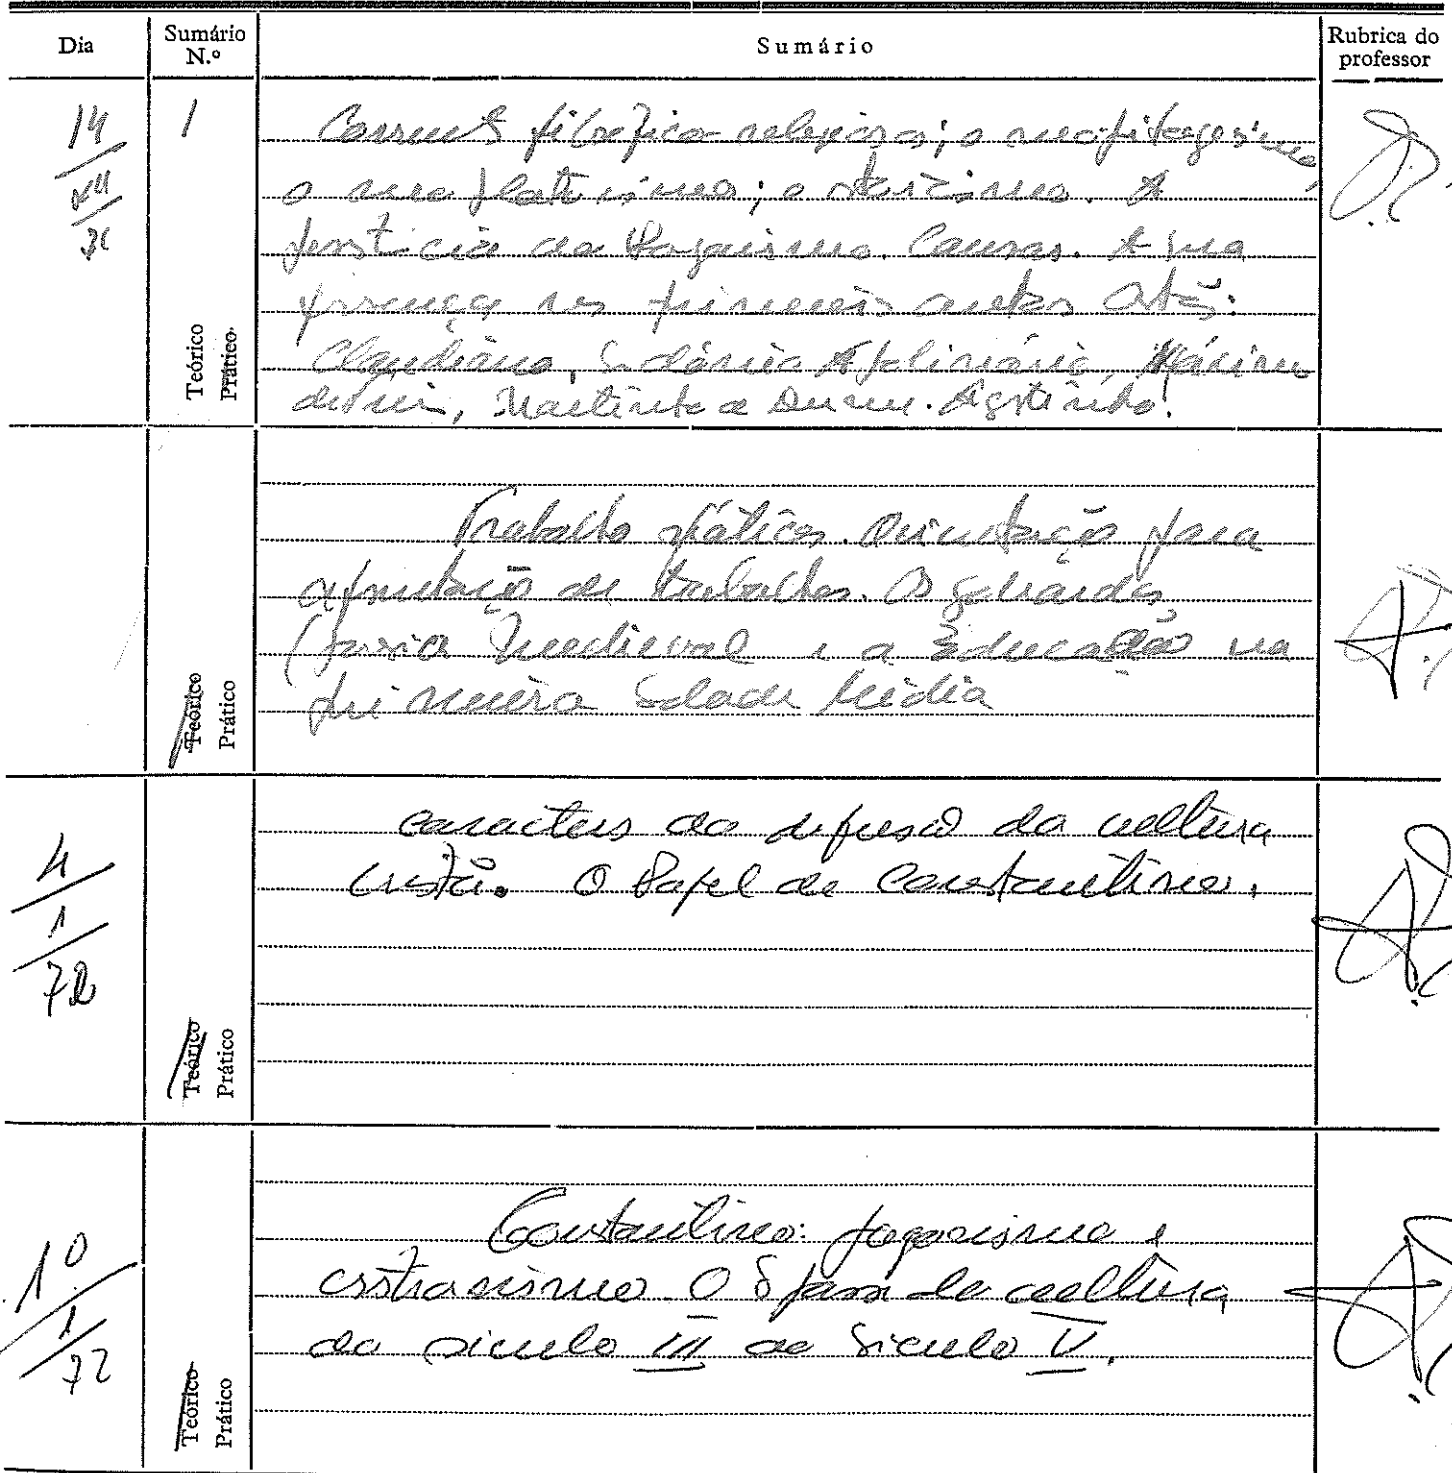 Dia
Sumário N.º
Sumário
Rubrica do professor
14
XII
71
1
Teórico
Prático
Correntes filosófico-religiosas; o neopitagorismo,
o neoplatonismo; o estoicismo. A
persistência do Paganismo. Causas. A sua
presença nos primeiros autores
Claudiano, Sidónio Apolinário, Máximo
de Turim, Martinho de Dume. Agostinho.
Teórico
Prático
Trabalho prático. Orientação para
apresentação de trabalhos. Os goliardos,
(poesia medieval e a Educação na
primeira Idade Média
4
1
72
Teórico
Prático
caracteres da difusão da cultura
cristã. O Papel de Constantino.
10
1
72
Teórico
Prático
Constantino: paganismo e
cristianismo. O da cultura
do século III ao século V.